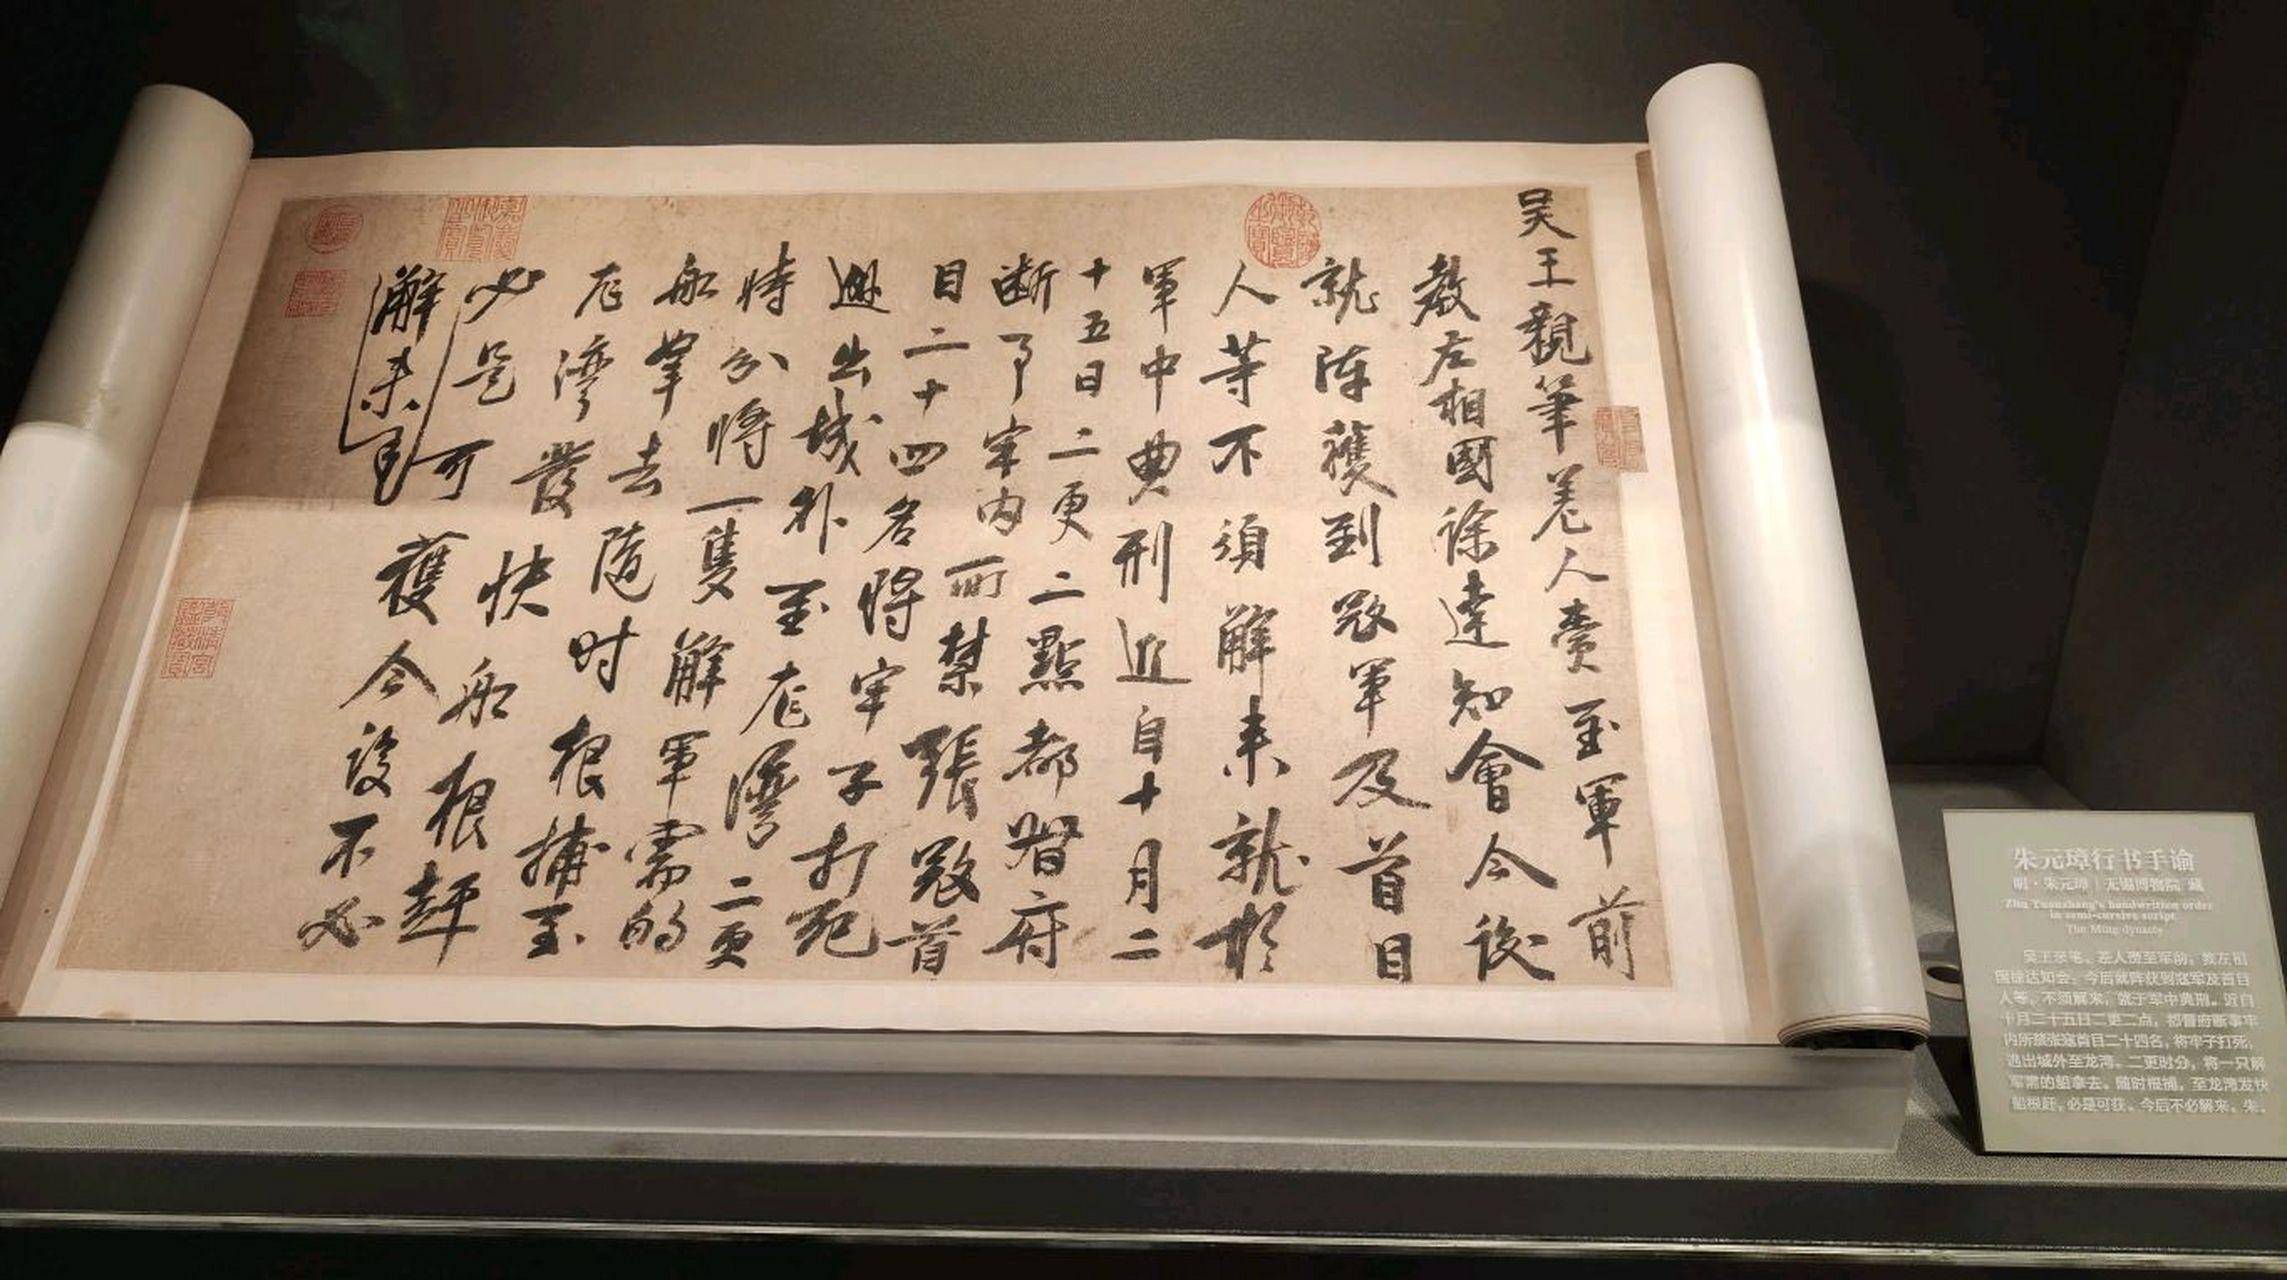 吳王親筆差人賫至軍前
教左相國徐達知會今後
就陣獲到寇軍及首目
人等不須解来就於
軍中典刑近自十月二
十五日二更二點都督府
断了牢内所禁張寇首
目二十四名將牢子打死
逃出城外至龙灣二更
時分將一隻解軍需的
船拿去隨时根捕至
龙灣發快船根赶
必是可獲今後不必
解来
朱元璋行书手谕
明·朱元璋｜无锡博物院 藏
Zhu Yuanzhang's handwritten order
in semi-cursive script
The Ming dynasty
吴王亲笔，差人赍至军前，教左相
国徐达知会，今后就阵获到寇军及首目
人等，不须解来，就于军中典刑。近自
十月二十五日二更二点，都督府断事牢
内所禁张寇首目二十四名，将牢子打死，
逃出城外至龙湾。二更时分，将一只解
军需的船拿去。随时根捕，至龙湾发快
船根赶，必是可获。今后不必解来。朱。